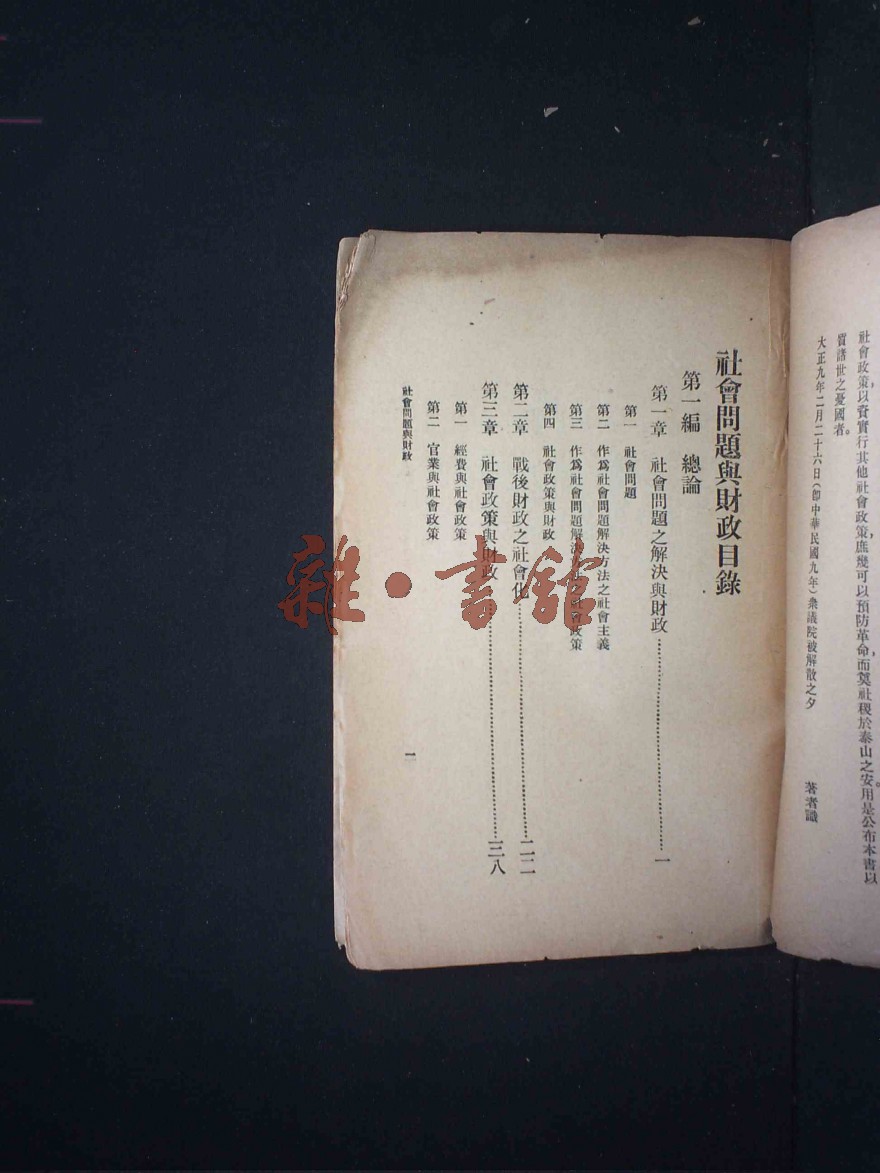 社會政策，以資實行其他社會政策，庶幾可以預防革命，而奠社稷於泰山之安。用是公布本書以
質諸世之憂國者。
大正九年二月二十六日（卽中華民國九年）衆議院被解散之夕
著者識
社會問題與財政目錄
第一編　總論
第一章　社會問題之解決與財政……一
第一　社會問題
第二　作爲社會問題解決方法之社會主義
第三　作爲社會問題解決方法之社會政策
第四　社會政策與財政
第二章　戰後財政之社會化……二二
第三章　社會政策與財政……三八
第一　經費與社會政策
第二　官業與社會政策
社會問題與財政
一
雜·書館